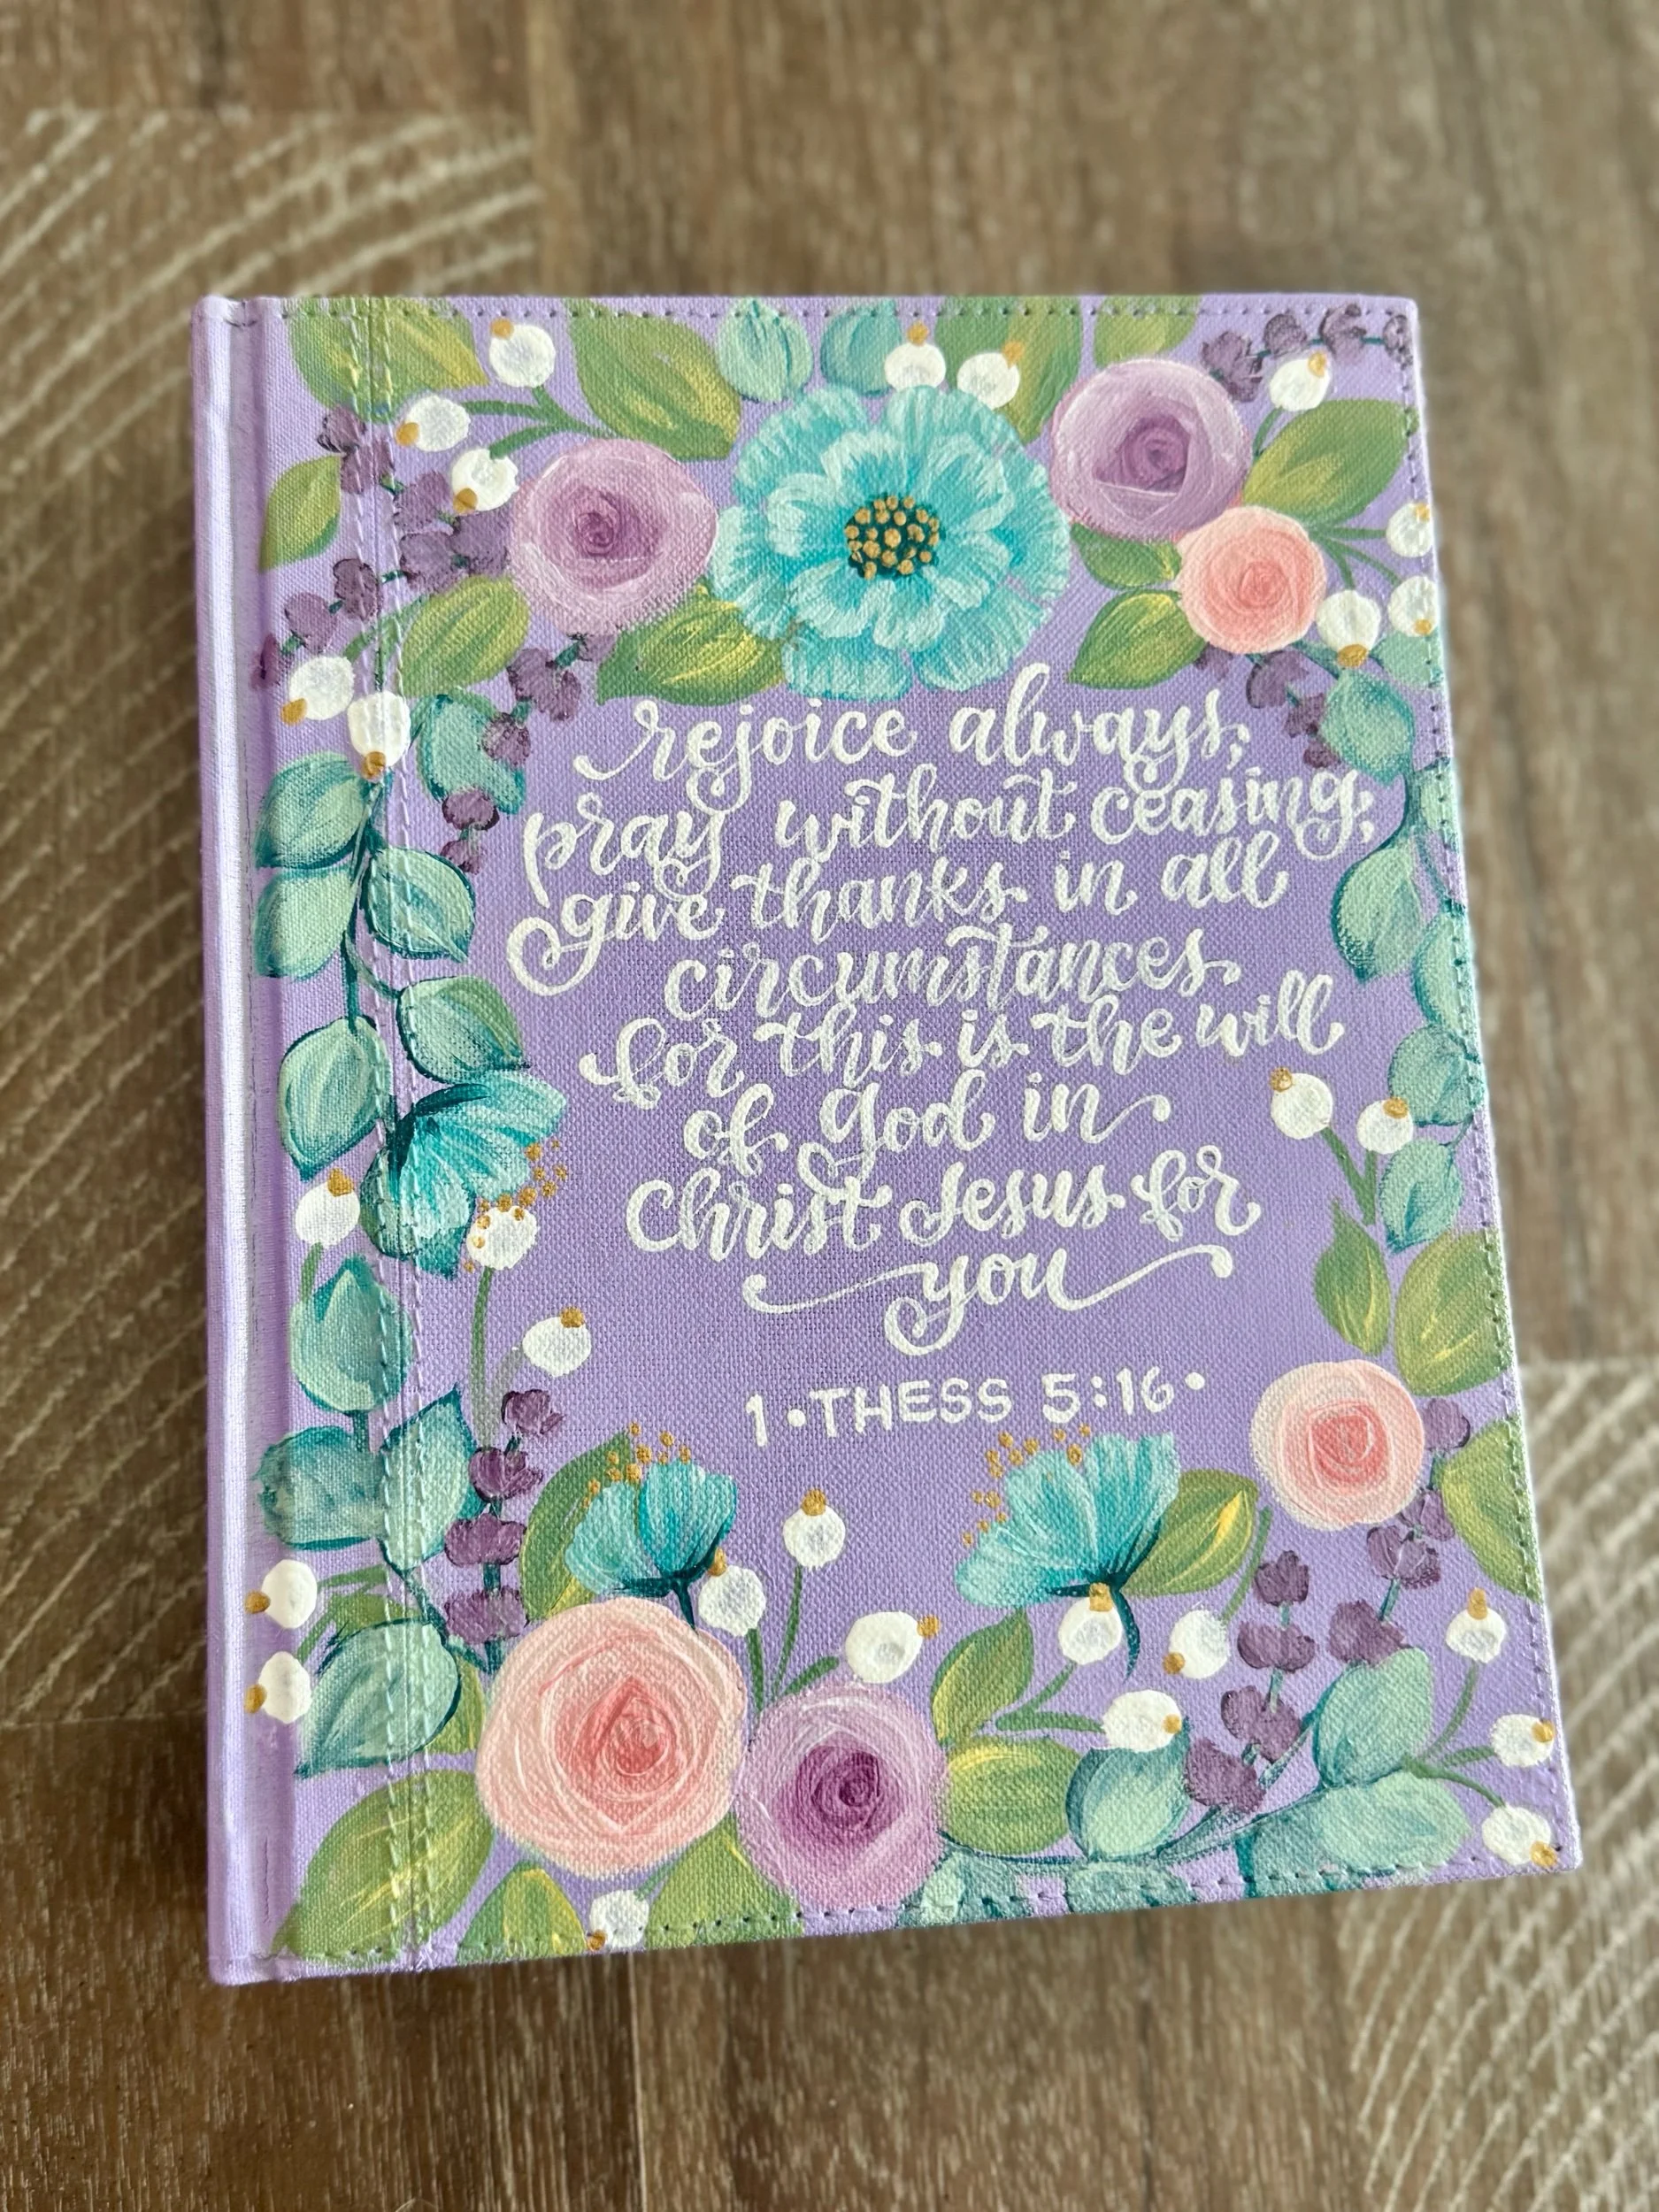 rejoice always,
pray without ceasing,
give thanks in all
circumstances
for this is the will
of god in
Christ Jesus for
you
1•THESS 5:16•